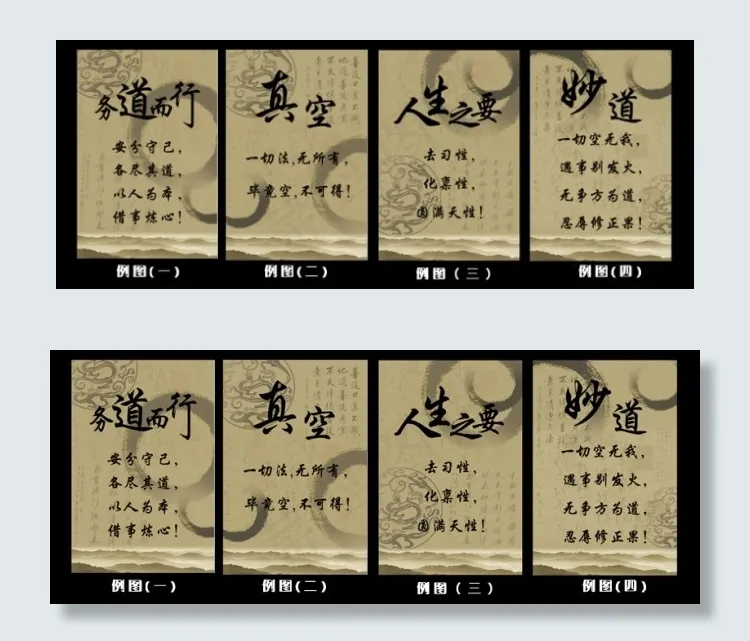 务道而行
安分守己,
各尽其道,
以人为本,
借事炼心!
例图(一)
真空
一切法,无所有,
毕竟空,不可得!
例图(二)
人生之要
去习性,
化禀性,
圆满天性!
例图(三)
妙道
一切空无我,
遇事别发火,
无争方为道,
忍辱修正果!
例图(四)
务道而行
安分守己,
各尽其道,
以人为本,
借事炼心!
例图(一)
真空
一切法,无所有,
毕竟空,不可得!
例图(二)
人生之要
去习性,
化禀性,
圆满天性!
例图(三)
妙道
一切空无我,
遇事别发火,
无争方为道,
忍辱修正果!
例图(四)